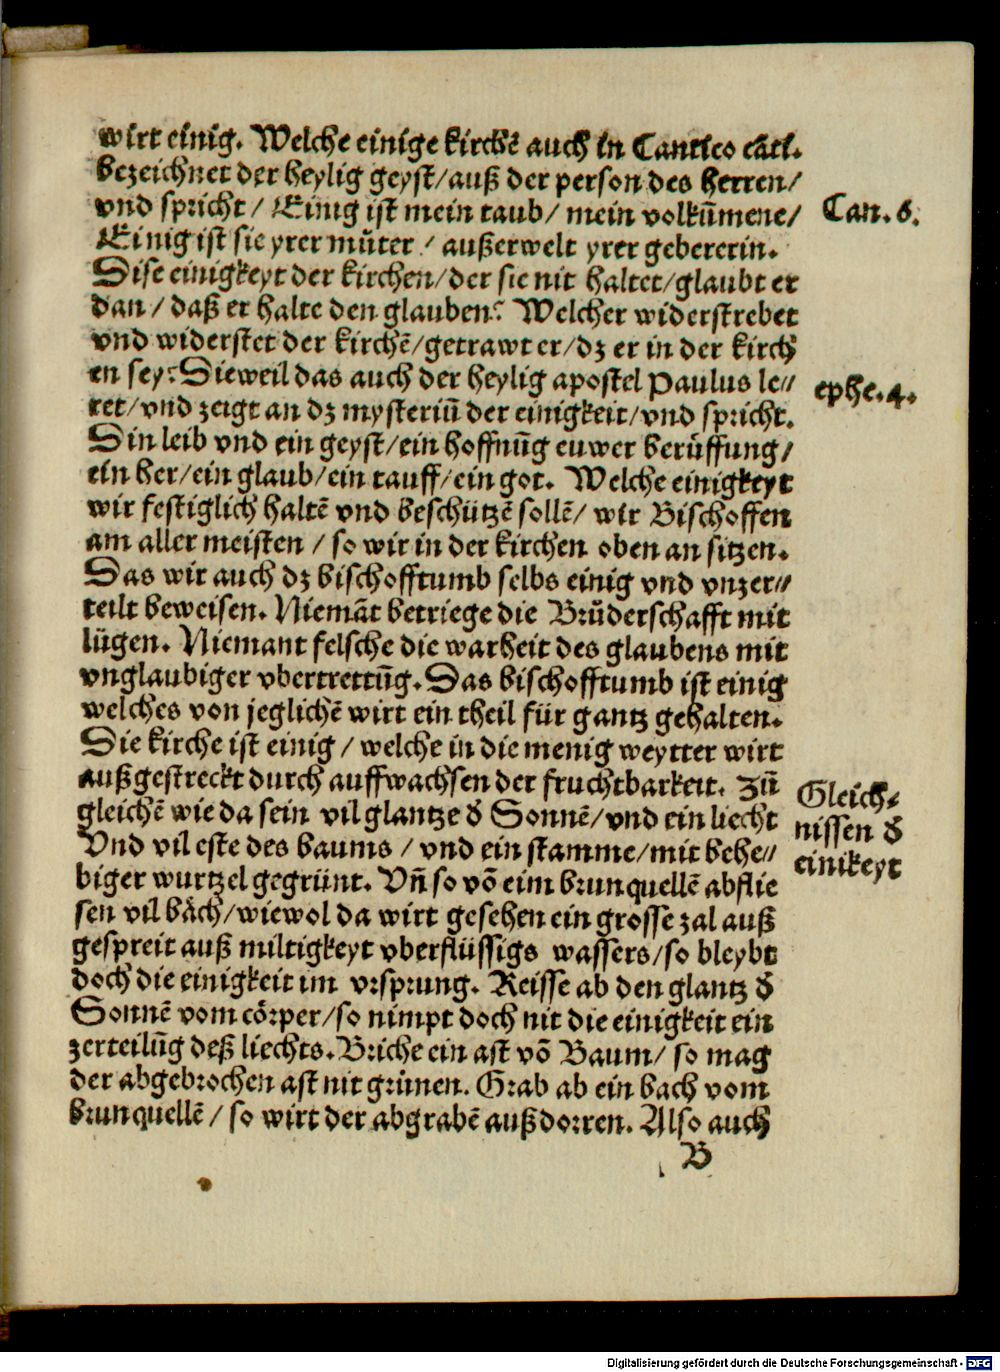 wirt einig. Welche einige kirchē auch in Cantico cāti.
bezeichnet der heylig geyst/auß der person des herren/
vnd spricht / Einig ist mein taub/ mein volkūmene/
Can. 6.
Einig ist sie yrer mūter / außerwelt yrer gebererin.
Dise einigkeyt der kirchen/der sie nit haltet/glaubt er
dan / daß er halte den glauben? Welcher widerstrebet
vnd widerstet der kirchē/getrawt er/dz er in der kirch
en sey? Dieweil das auch der heylig apostel Paulus le⸗
ephe. 4.
ret/vnd zeigt an dz mysteriū der einigkeit/vnd spricht.
Ein leib vnd ein geyst/ein hoffnūg euwer berůffung/
ein her/ein glaub/ein tauff/ein got. Welche einigkeyt
wir festiglich haltē vnd beschützē sollē/ wir Bischoffen
am aller meisten / so wir in der kirchen oben an sitzen.
Das wir auch dz bischofftumb selbs einig vnd vnzer⸗
teilt beweisen. Niemāt betriege die Brůderschafft mit
lügen. Niemant felsche die warheit des glaubens mit
vnglaubiger vbertrettūg. Das bischofftumb ist einig
welches von jeglichē wirt ein theil für gantz gehalten.
Die kirche ist einig / welche in die menig weytter wirt
außgestreckt durch auffwachsen der fruchtbarkeit. Zů
gleichē wie da sein vil glantze d̕ Sonnē/vnd ein liecht
Gleich⸗
nissen d̕
einikeyt
Vnd vil este des baums / vnd ein stamme/mit behe⸗
biger wurtzel gegrünt. Vn̄ so vō eim brunquellē abflie
sen vil bäch/wiewol da wirt gesehen ein grosse zal auß
gespreit auß miltigkeyt vberflüssigs wassers/so bleybt
doch die einigkeit im vrsprung. Reisse ab den glantz d̕
Sonnē vom cörper/so nimpt doch nit die einigkeit ein
zerteilūg deß liechts. Briche ein ast vō Baum/ so mag
der abgebrochen ast nit grünen. Grab ab ein bach vom
brunquellē / so wirt der abgrabē außdorren. Also auch
B
Digitalisierung gefördert durch die Deutsche Forschungsgemeinschaft - DFG